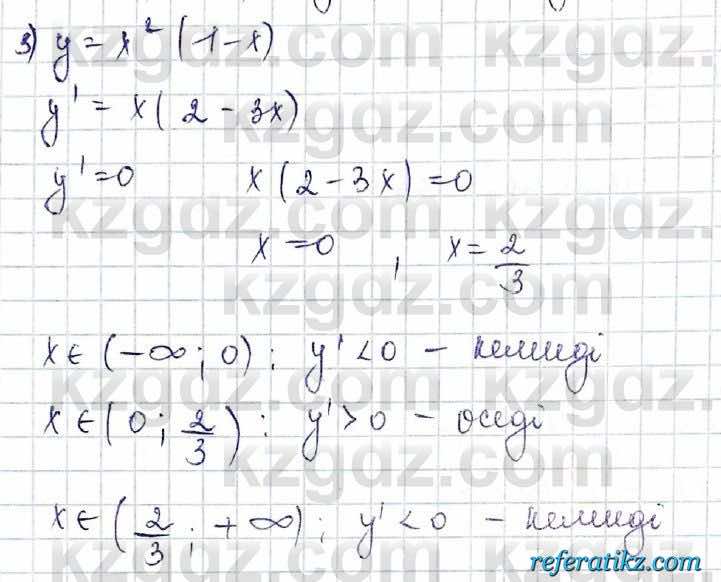 3) y = x² (1 - x)
y' = x ( 2 - 3x)
y' = 0 x ( 2 - 3x ) = 0
x = 0 , x = 2/3
x ∈ (-∞ ; 0) ; y' < 0 - кемиді
x ∈ ( 0 ; 2/3 ) ; y' > 0 - өседі
x ∈ ( 2/3 ; +∞) ; y' < 0 - кемиді
kzgdz.com
referatikz.com